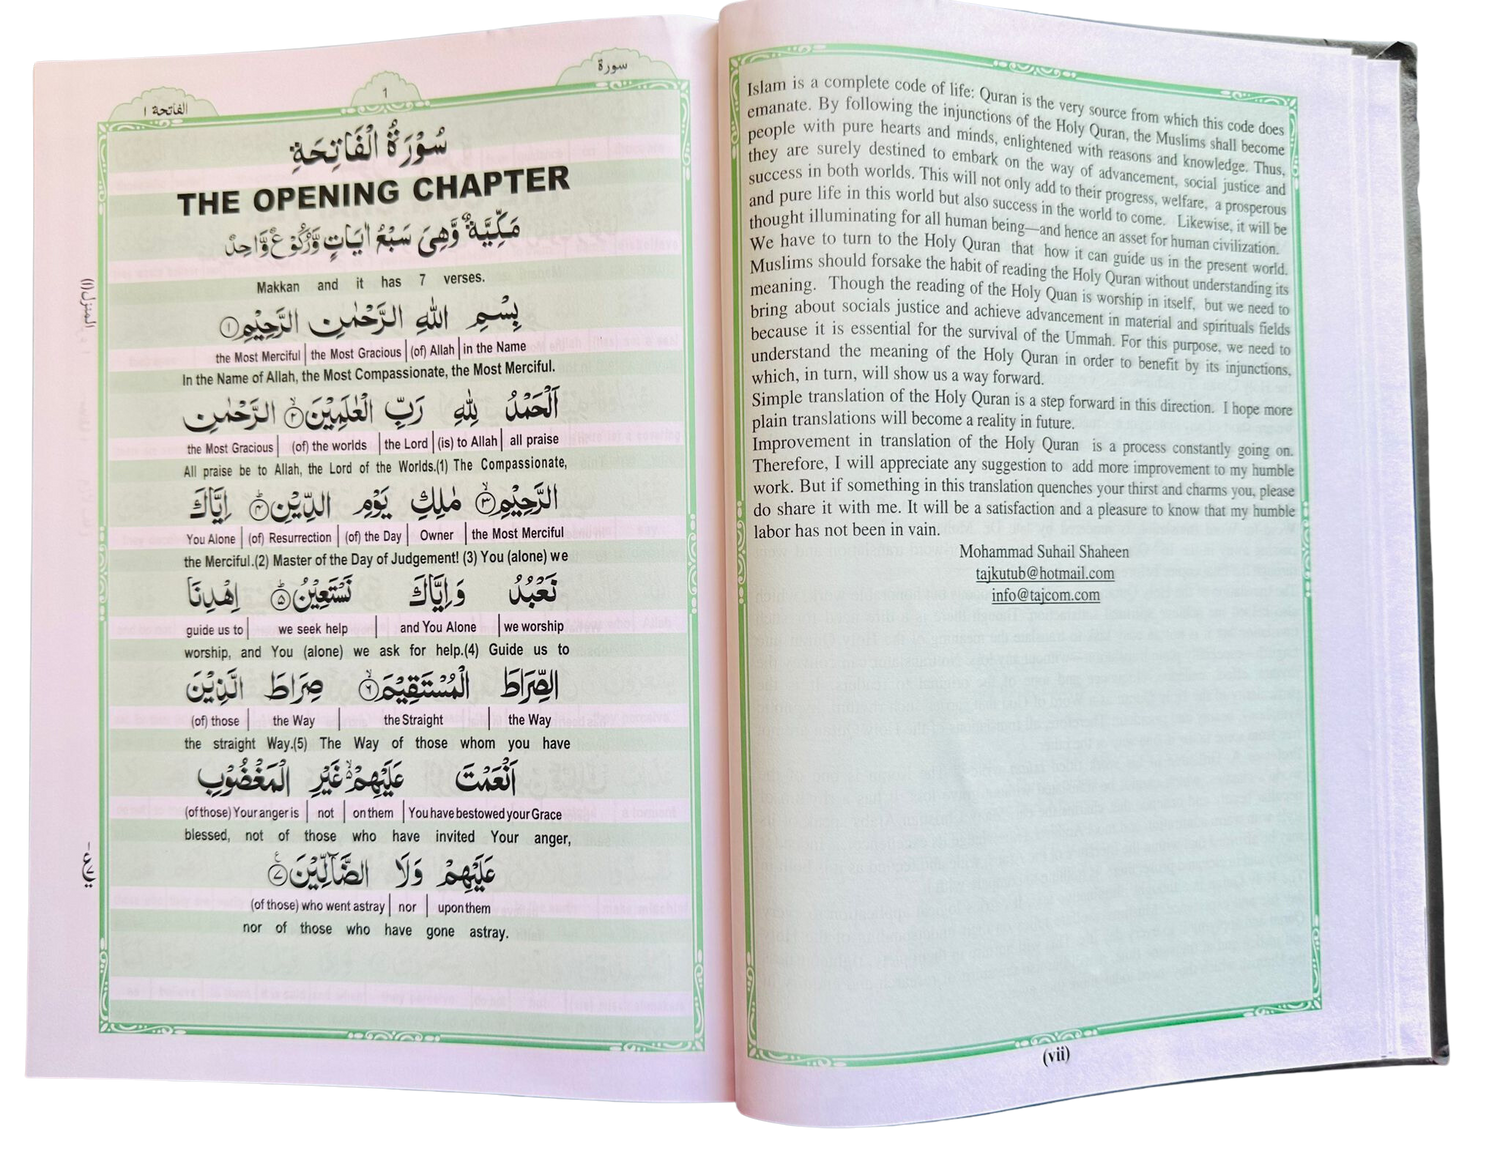 الفاتحة ١
1
سورة
سُوْرَةُ الْفَاتِحَةِ
THE OPENING CHAPTER
مَكِّيَّةٌ وَّهِيَ سَبْعُ اٰيَاتٍ وَّرُكُوْعٌ وَّاحِدٌ
Makkan and it has 7 verses.
بِسْمِ اللّٰهِ الرَّحْمٰنِ الرَّحِيْمِ ۝١
the Most Merciful | the Most Gracious | (of) Allah | in the Name
In the Name of Allah, the Most Compassionate, the Most Merciful.
اَلْحَمْدُ لِلّٰهِ رَبِّ الْعٰلَمِيْنَ ۝٢ الرَّحْمٰنِ
the Most Gracious | (of) the worlds | the Lord | (is) to Allah | all praise
All praise be to Allah, the Lord of the Worlds.(1) The Compassionate,
الرَّحِيْمِ ۝٣ مٰلِكِ يَوْمِ الدِّيْنِ ۝٤ اِيَّاكَ
You Alone | (of) Resurrection | (of) the Day | Owner | the Most Merciful
the Merciful.(2) Master of the Day of Judgement! (3) You (alone) we
نَعْبُدُ وَاِيَّاكَ نَسْتَعِيْنُ ۝٥ اِهْدِنَا
guide us to | we seek help | and You Alone | we worship
worship, and You (alone) we ask for help.(4) Guide us to
الصِّرَاطَ الْمُسْتَقِيْمَ ۝٦ صِرَاطَ الَّذِيْنَ
(of) those | the Way | the Straight | the Way
the straight Way.(5) The Way of those whom you have
اَنْعَمْتَ عَلَيْهِمْ غَيْرِ الْمَغْضُوْبِ
(of those) Your anger is | not | on them | You have bestowed your Grace
blessed, not of those who have invited Your anger,
عَلَيْهِمْ وَلَا الضَّآلِّيْنَ ۝٧
(of those) who went astray | nor | upon them
nor of those who have gone astray.
المنزل (١)
Islam is a complete code of life: Quran is the very source from which this code does
emanate. By following the injunctions of the Holy Quran, the Muslims shall become
people with pure hearts and minds, enlightened with reasons and knowledge. Thus,
they are surely destined to embark on the way of advancement, social justice and
success in both worlds. This will not only add to their progress, welfare, a prosperous
and pure life in this world but also success in the world to come. Likewise, it will be
thought illuminating for all human being—and hence an asset for human civilization.
We have to turn to the Holy Quran that how it can guide us in the present world.
Muslims should forsake the habit of reading the Holy Quran without understanding its
meaning. Though the reading of the Holy Quan is worship in itself, but we need to
bring about socials justice and achieve advancement in material and spirituals fields
because it is essential for the survival of the Ummah. For this purpose, we need to
understand the meaning of the Holy Quran in order to benefit by its injunctions,
which, in turn, will show us a way forward.
Simple translation of the Holy Quran is a step forward in this direction. I hope more
plain translations will become a reality in future.
Improvement in translation of the Holy Quran is a process constantly going on.
Therefore, I will appreciate any suggestion to add more improvement to my humble
work. But if something in this translation quenches your thirst and charms you, please
do share it with me. It will be a satisfaction and a pleasure to know that my humble
labor has not been in vain.
Mohammad Suhail Shaheen
tajkutub@hotmail.com
info@tajcom.com
(vii)